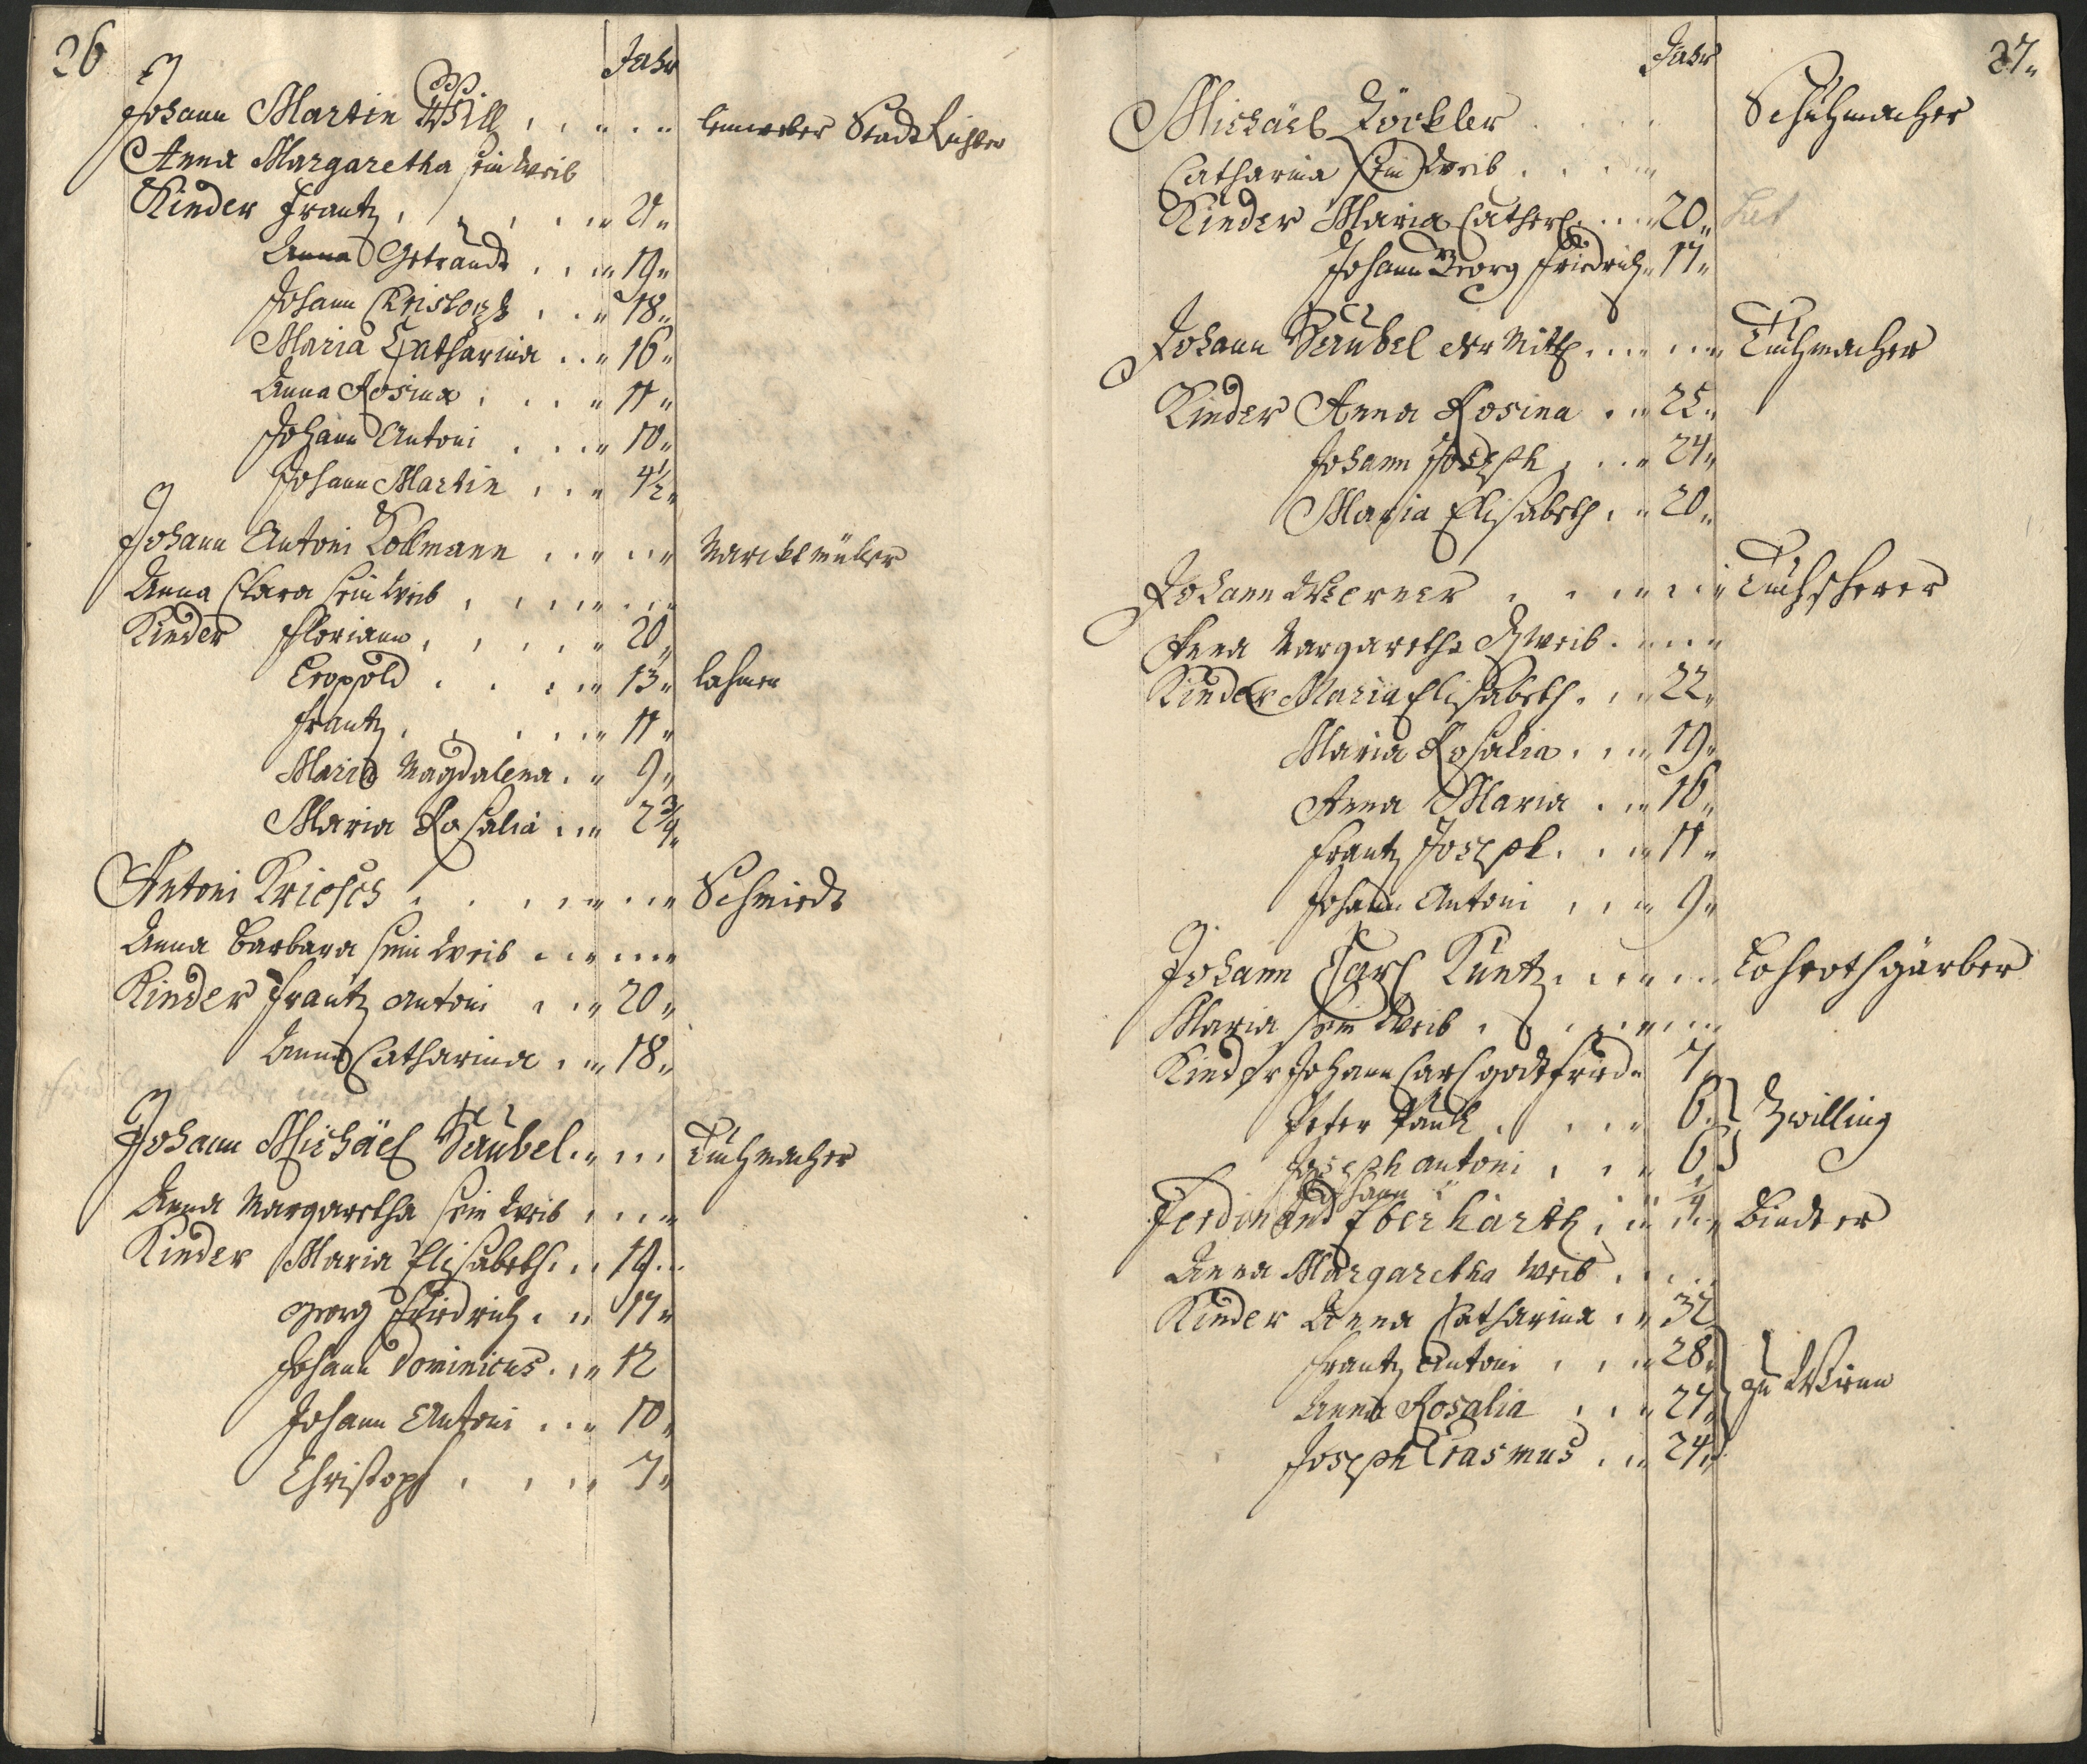 26
Jahr
Johann Martin Will Leinweber Stadt Richter
Anna Margaretha sein Weib
Kinder Frantz 21
Anna Getraudt 19
Johann Christoph 18
Maria Catharina 16
Anna Rosina 11
Johann Antoni 10
Johann Martin 4½
Johann Antoni Kollmann Marcktmüller
Anna Clara sein Weib
Kinder Floriann 20
Leopold 13 lahmen
Frantz 11
Maria Magdalena 9
Maria Rosalia 2¾
Antoni Kriesch Schmidt
Anna Barbara sein Weib
Kinder Frantz Antoni 20
Anna Catharina 18
Johann Michäel Säubel Tuchmacher
Anna Margaretha sein Weib
Kinder Maria Elisabeth 19
Georg Friedrich 17
Johann Dominicus 12
Johann Antoni 10
Christoph 7
27
Jahr
Michäel Köckler Schuhmacher
Catharina sein Weib
Kinder Maria Cather 20
Johann Georg Friedrich 17
Johann Säubel der Mitl Tuchmacher
Kinder Anna Rosina 25
Johann Joseph 24
Maria Elisabeth 20
Johann Werner Tuchscherer
Anna Margaretha Weib
Kinder Maria Elisabeth 22
Maria Rosalia 19
Anna Maria 16
Frantz Joseph 11
Johann Antoni 9
Johann Carl Kuntz Lohrothgärber
Maria sein Weib
Kinder Johann Carl Gottfried 7
Peter Paul 6 Zwilling
Joseph Antoni 6
Johann ¼
Ferdinand Eberharth Binder
Anna Margaretha Weib
Kinder Anna Catharina 32
Frantz Antoni 28
zu Wienn
Anna Rosalia 27
Joseph Erasmus 24